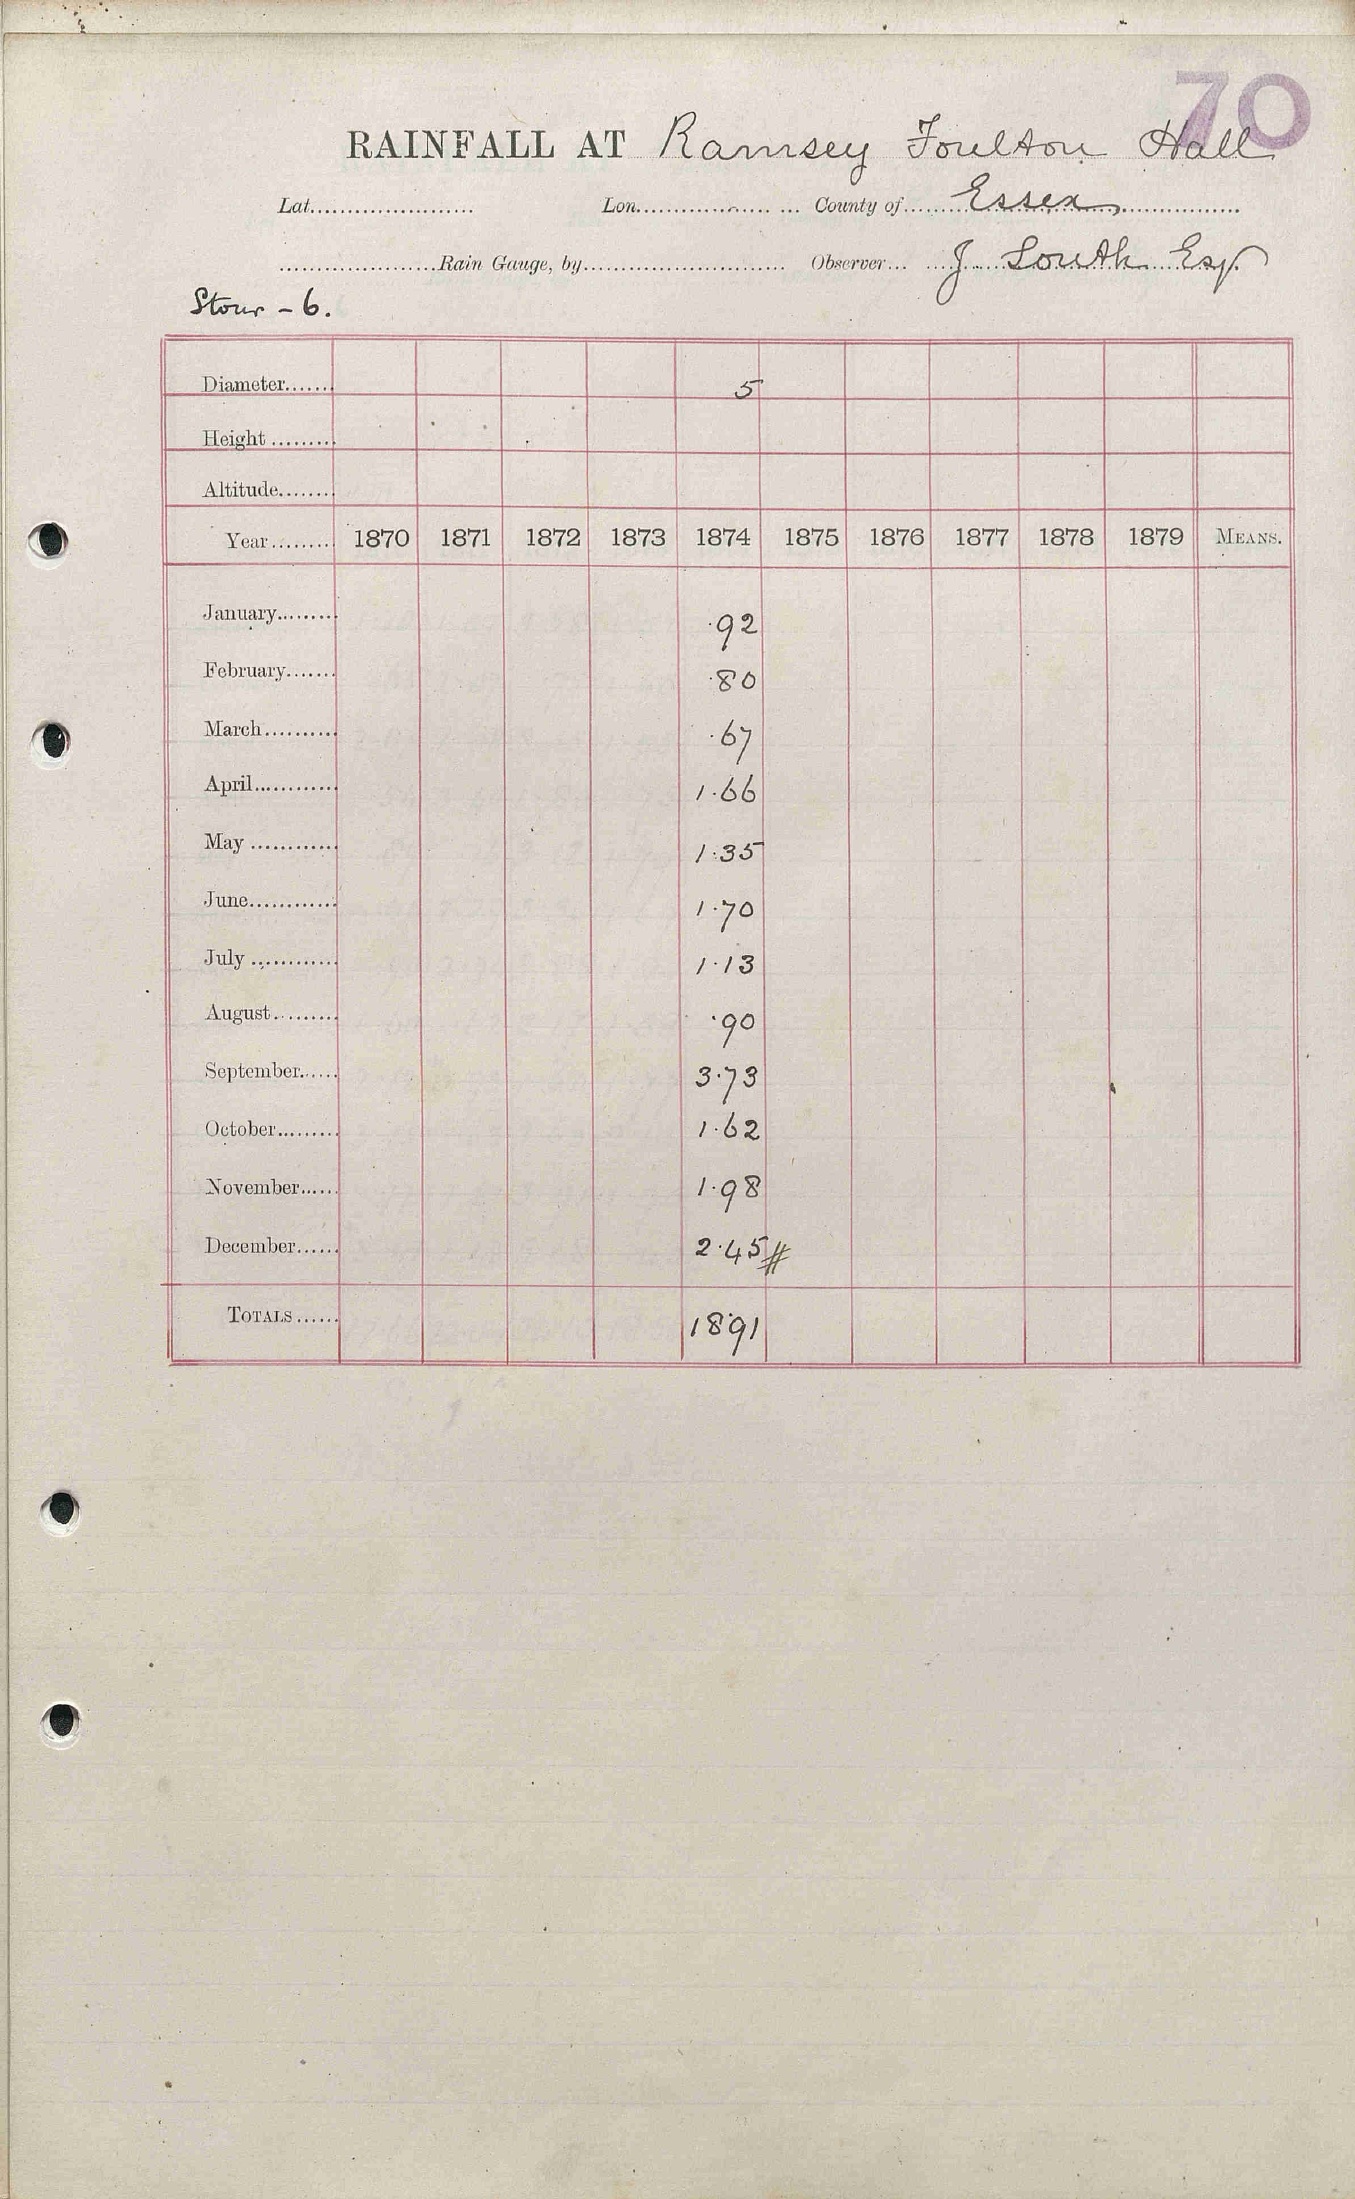 70
RAINFALL AT Ramsey Foulton Hall
Lat.................... Lon.................... County of Essex
....................Rain Gauge, by.................... Observer J. South Esq.
Stour - 6.
Diameter....... 5
Height .........
Altitude........
Year......... 1870 1871 1872 1873 1874 1875 1876 1877 1878 1879 MEANS.
January......... ·92
February....... ·80
March.......... ·67
April............ 1·66
May ............ 1·35
June............ 1·70
July ............ 1·13
August......... ·90
September...... 3·73
October......... 1·62
November...... 1·98
December...... 2·45 #
TOTALS...... 18·91